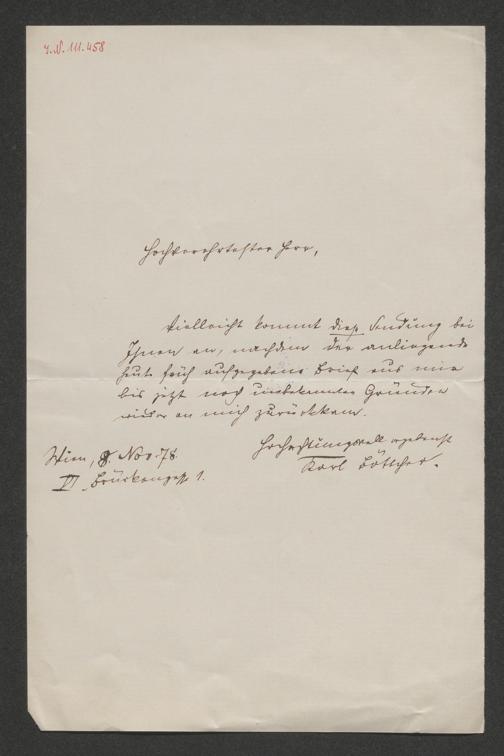 I.N. 111.458
Hochverehrtester Herr,
Vielleicht kommt diese Sendung bei
Ihnen an, nachdem der anliegende
heute früh aufgegebene Brief aus mir
bis jetzt noch unbekannten Gründen
wieder an mich zurückkam.
Hochachtungsvoll ergebenst
Karl Böttcher.
Wien, 8. Nov. 78.
VI Brückengasse 1.